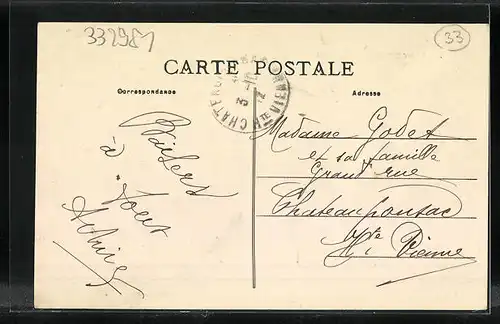 332981
33
CARTE POSTALE
Correspondance
Adresse
CHATEAU
Hte VIENNE
Baisers
à
tous
Madame Godet
et sa famille
Grand rue
Chateauponsac
Hte Vienne